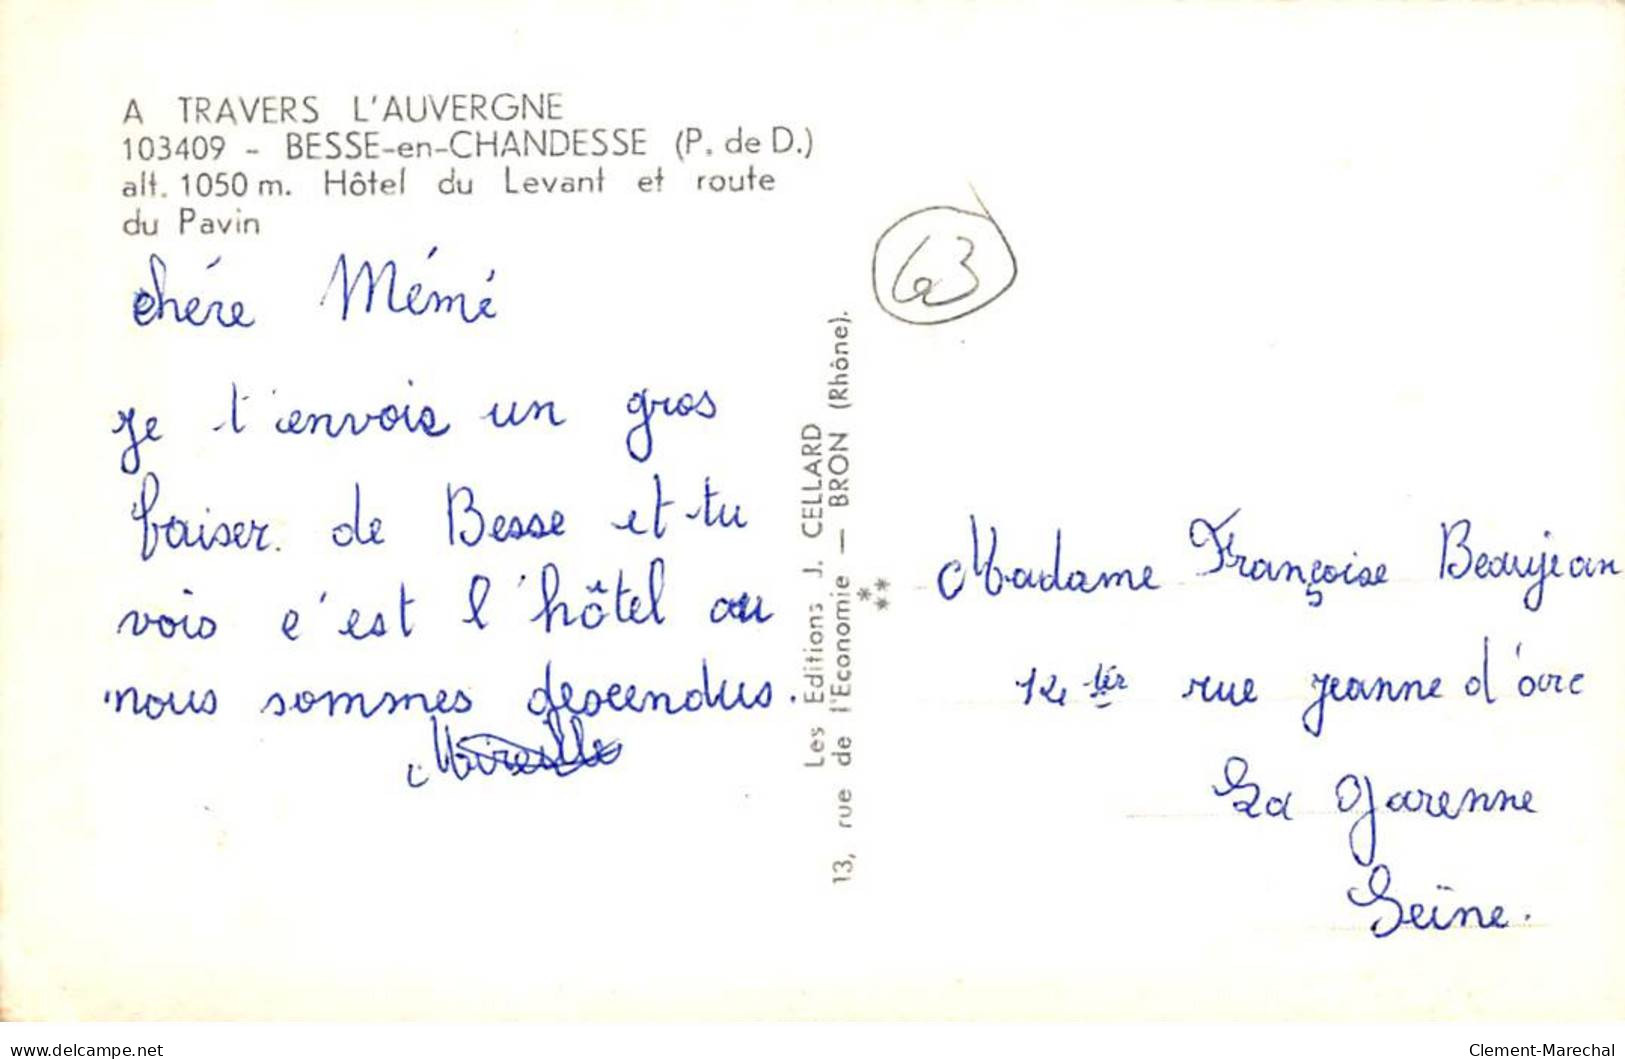 A TRAVERS L'AUVERGNE
103409 - BESSE-en-CHANDESSE (P. de D.)
alt. 1050 m. Hôtel du Levant et route
du Pavin
chére Mémé
je t'envois un gros
baiser de Besse et tu
vois c'est l'hôtel au
nous sommes descendus.
Mireille
Les Editions J. CELLARD
13, rue de l'Economie — BRON (Rhône).
63
Madame Françoise Beaujean
12 ter rue jeanne d'arc
La garenne
Seïne.
www.delcampe.net
Clement-Marechal